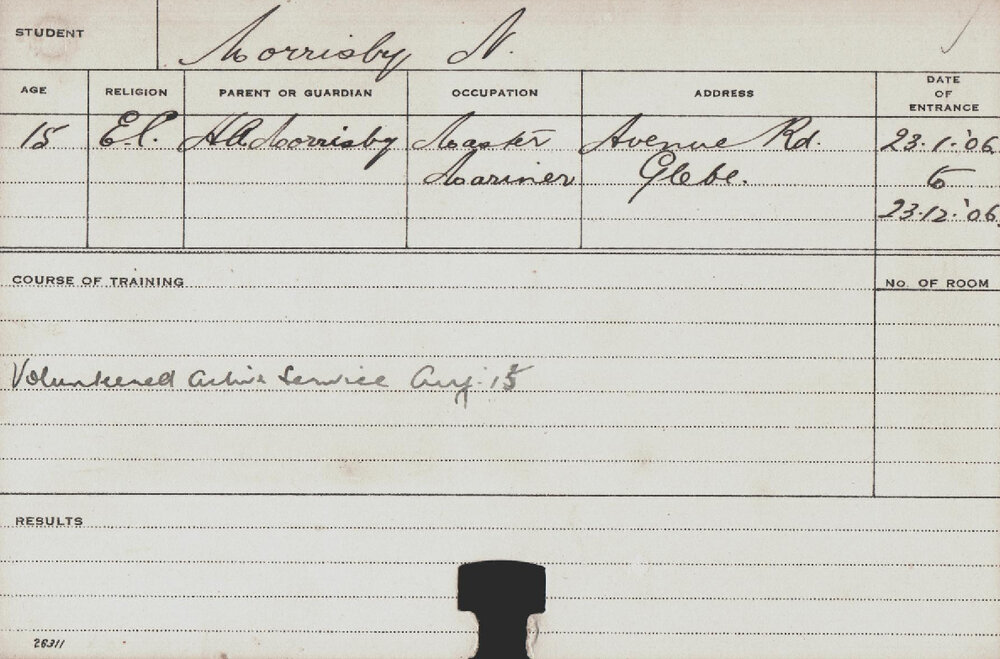 STUDENT Morrisby N.
AGE RELIGION PARENT OR GUARDIAN OCCUPATION ADDRESS DATE OF ENTRANCE
15 E.C. HA Morrisby Master Avenue Rd. 23.1.'06
Mariner Glebe. to
23.12.'06
COURSE OF TRAINING No. OF ROOM
Volunteered Active Service Aug. 15
RESULTS
26311